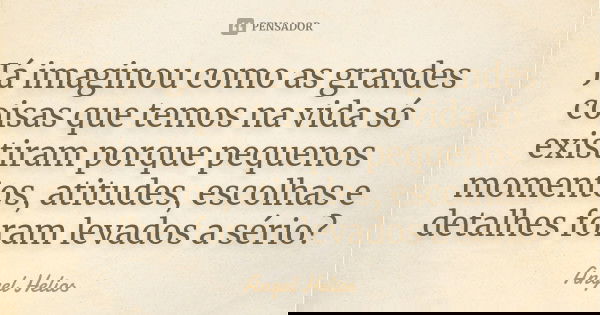 PENSADOR
Já imaginou como as grandes
coisas que temos na vida só
existiram porque pequenos
momentos, atitudes, escolhas e
detalhes foram levados a sério?
Helios